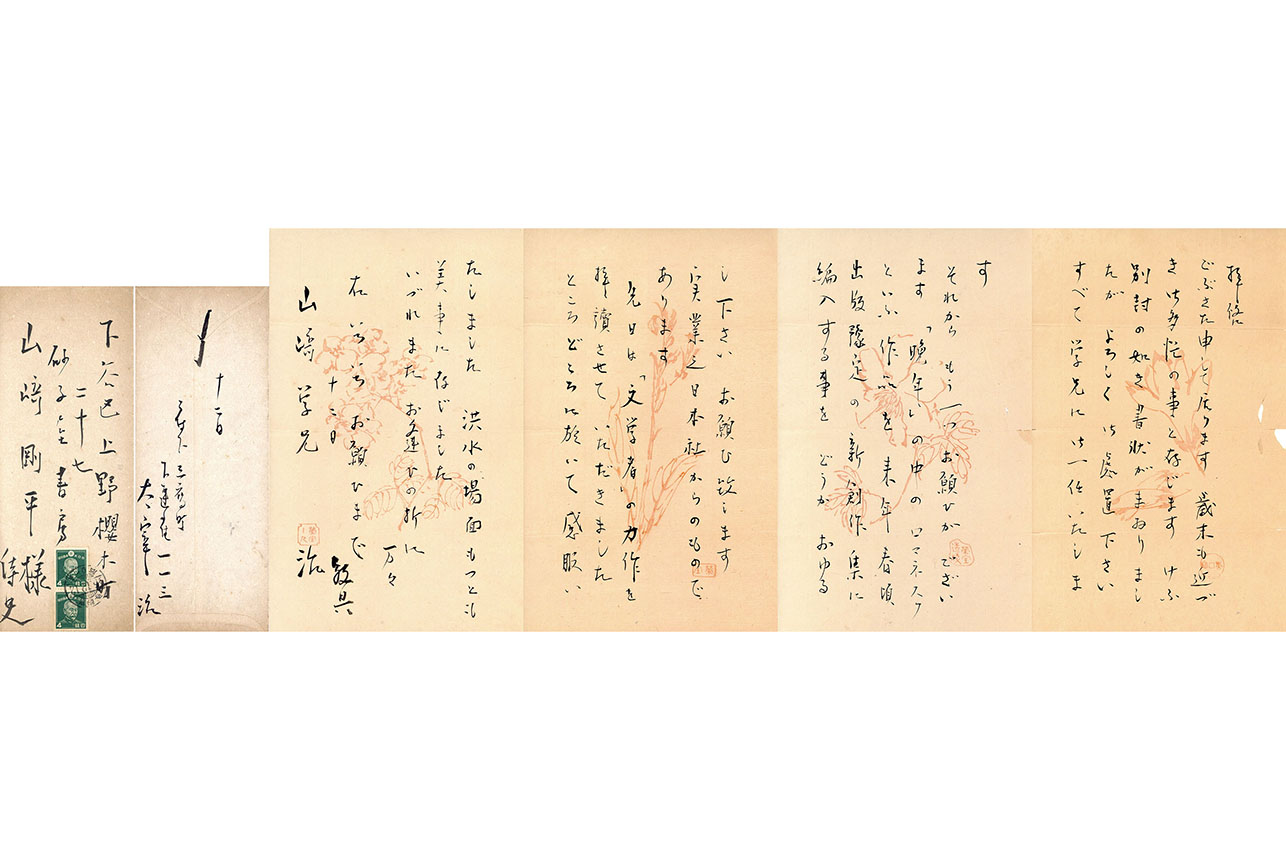 拝啓
ごぶさた申して居ります 歳末も近づ
き御多忙の事と存じます けふ
別封の如き書状がまゐりまし
たが よろしく御処置下さい
すべて 学兄に御一任いたしま
す
それから もう一つお願ひがござい
ます 「晩年」の中のロマネスク
といふ作品を 来年春頃
出版豫定の新創作集に
編入する事を どうか おゆる
し下さい お願ひ致します
実業之日本社からのもので
あります
先日は「文学者」の力作を
拝讀させていただきました
ところどころに於いて感服い
たしました 洪水の場面もつとも
美事に存じました
いづれまた お逢ひの折に
万々
右 お願ひまで
敬具
十二日
治
山崎学兄
下谷区上野櫻木町
二十七
砂子屋書房
山崎剛平様
侍史
三鷹町
下連雀一一三
太宰治